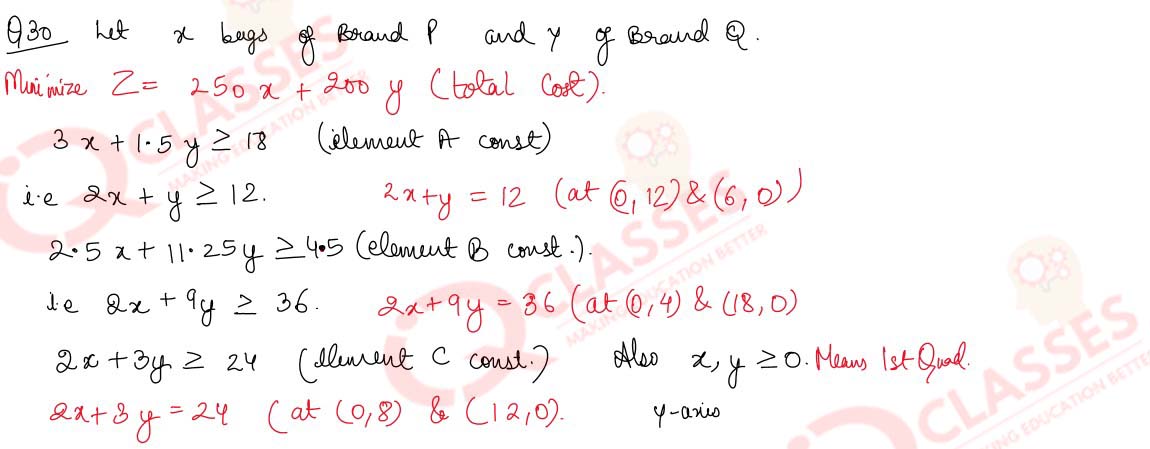 Q30 Let x bags of Brand P and y of Brand Q.
Minimize Z = 250x + 200y (total Cost).
3x + 1.5y ≥ 18 (element A const)
i.e 2x + y ≥ 12. 2x+y = 12 (at (0,12) & (6,0))
2.5x + 11.25y ≥ 4.5 (element B const.).
i.e 2x + 9y ≥ 36. 2x+9y = 36 (at (0,4) & (18,0)
2x + 3y ≥ 24 (element C const.) Also x, y ≥ 0. Means 1st Quad.
2x+3y = 24 (at (0,8) & (12,0). y-axis
IQ CLASSES
MAKING EDUCATION BETTER
IQ CLASSES
MAKING EDUCATION BETTER
IQ CLASSES
MAKING EDUCATION BETTER